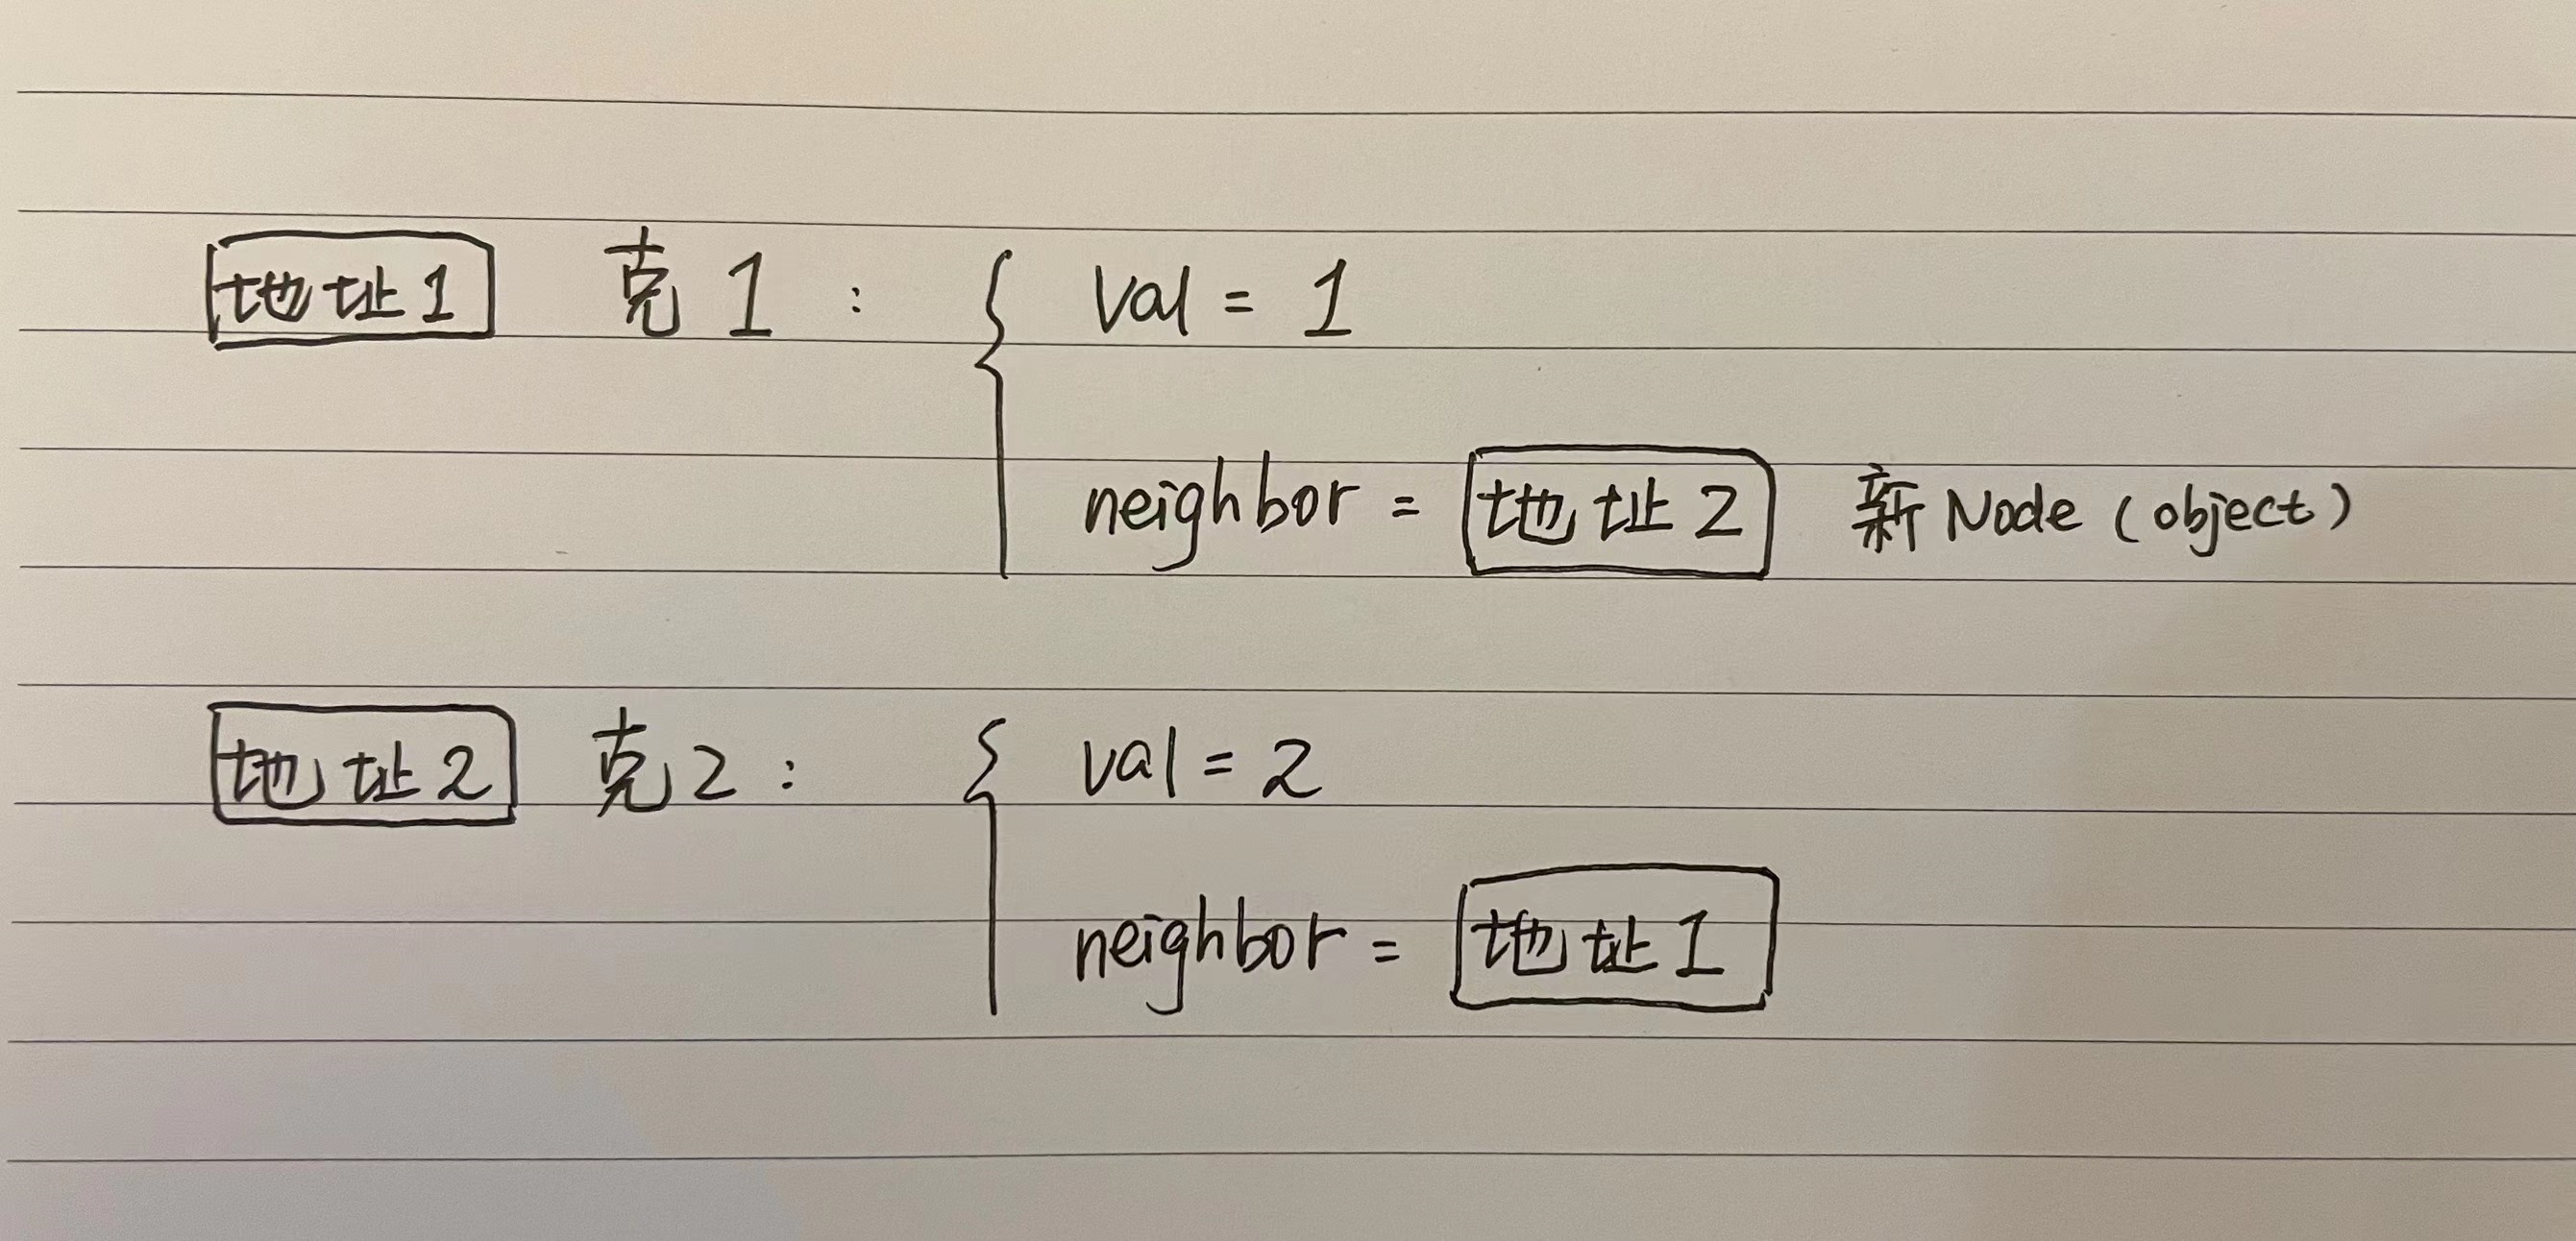 地址1 克1 : { val = 1
neighbor = 地址2 新Node (object)
地址2 克2 : { val = 2
neighbor = 地址1